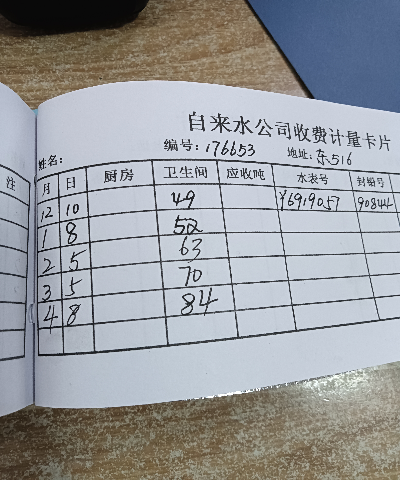 自来水公司收费计量卡片
编号: 176653 地址: 东516
姓名:
注
月 日 厨房 卫生间 应收吨 水表号 封铅号
12 10 49 Y6919057 90844
1 8 52
2 5 63
3 5 70
4 8 84